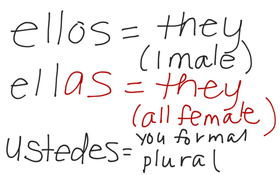 ellos = they
(1 male)
ellas = they
(all female)
ustedes = you formal
plural